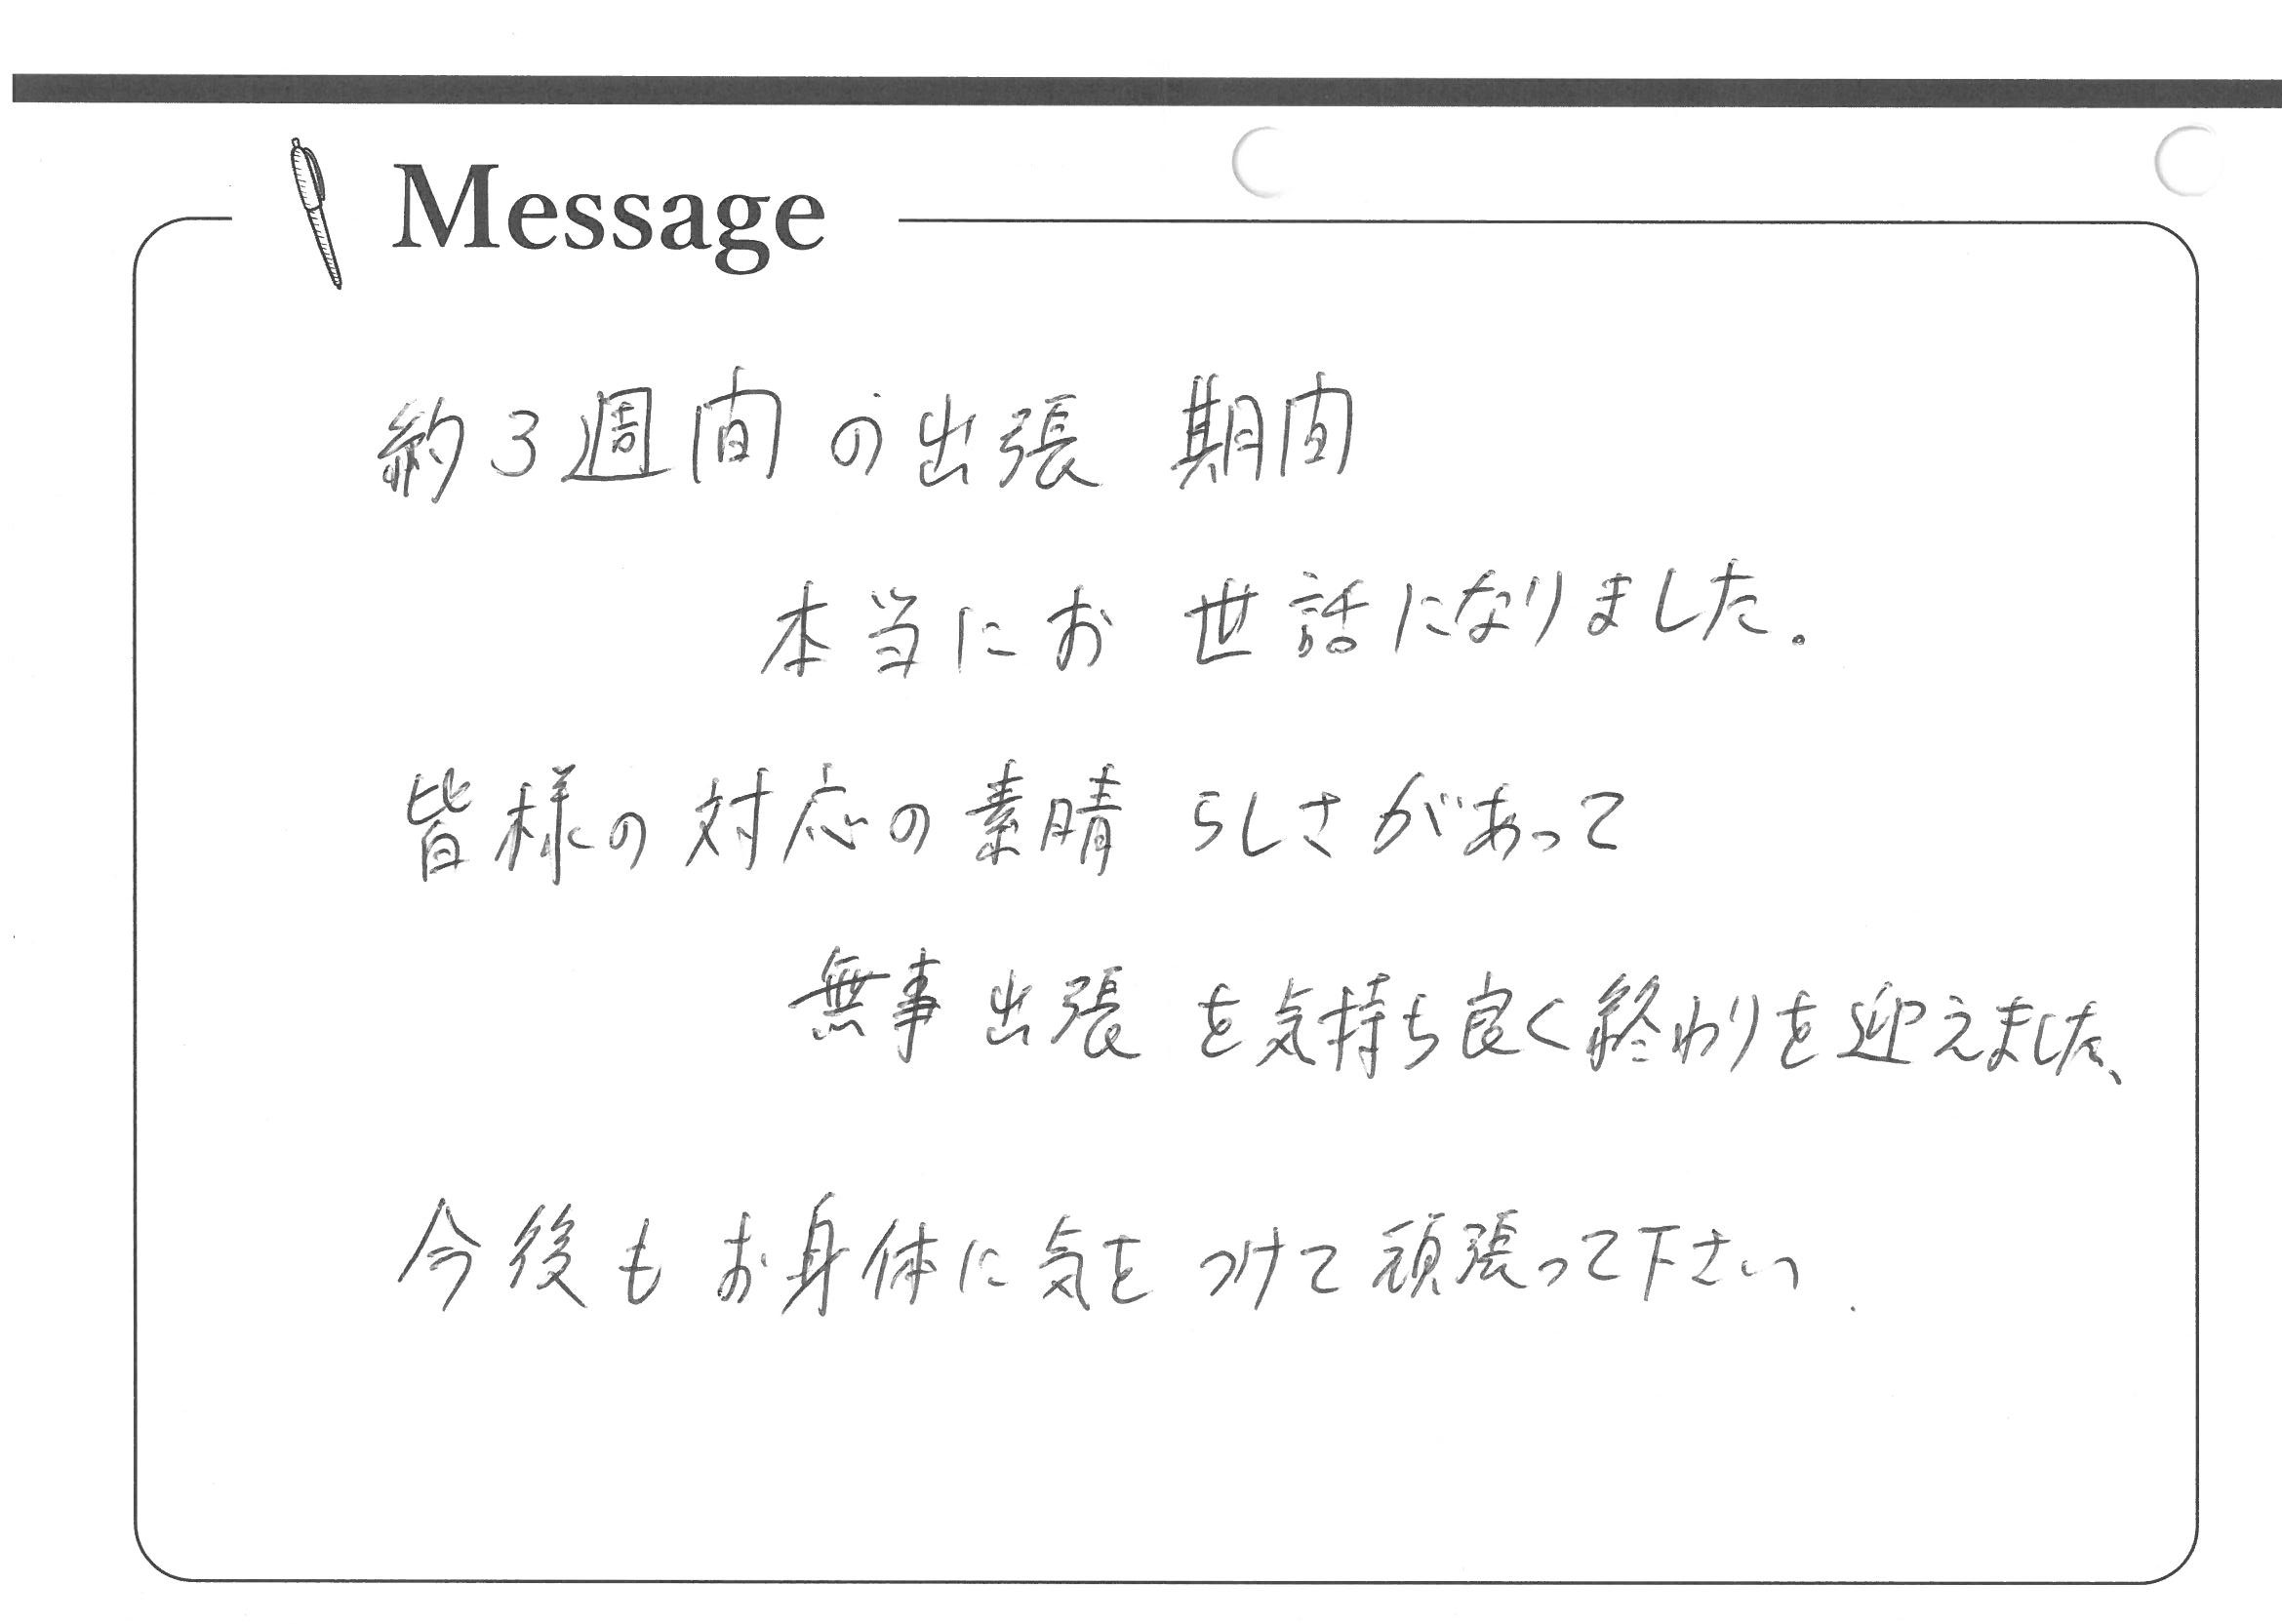 Message
約3週間の出張期間
本当にお世話になりました。
皆様の対応の素晴らしさがあって
無事出張を気持ち良く終わりを迎えました、
今後もお身体に気をつけて頑張って下さい.